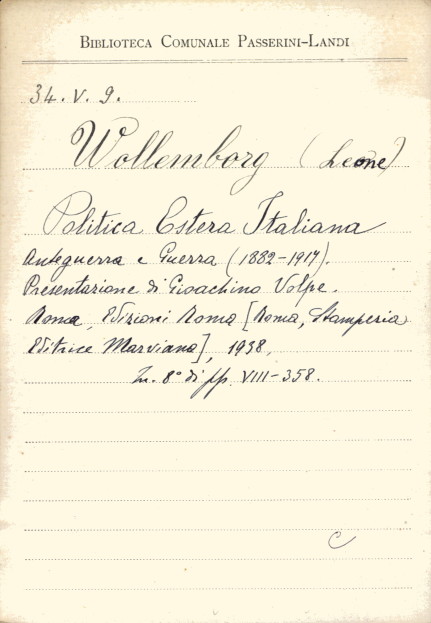 BIBLIOTECA COMUNALE PASSERINI-LANDI
34. V. 9.
Wollemborg (Leone)
Politica Estera Italiana
Anteguerra e Guerra (1882-1917).
Presentazione di Gioachino Volpe.
Roma, Edizioni Roma [Roma, Stamperia
Editrice Marviana], 1938,
In. 8° di pp. VIII-358.
C